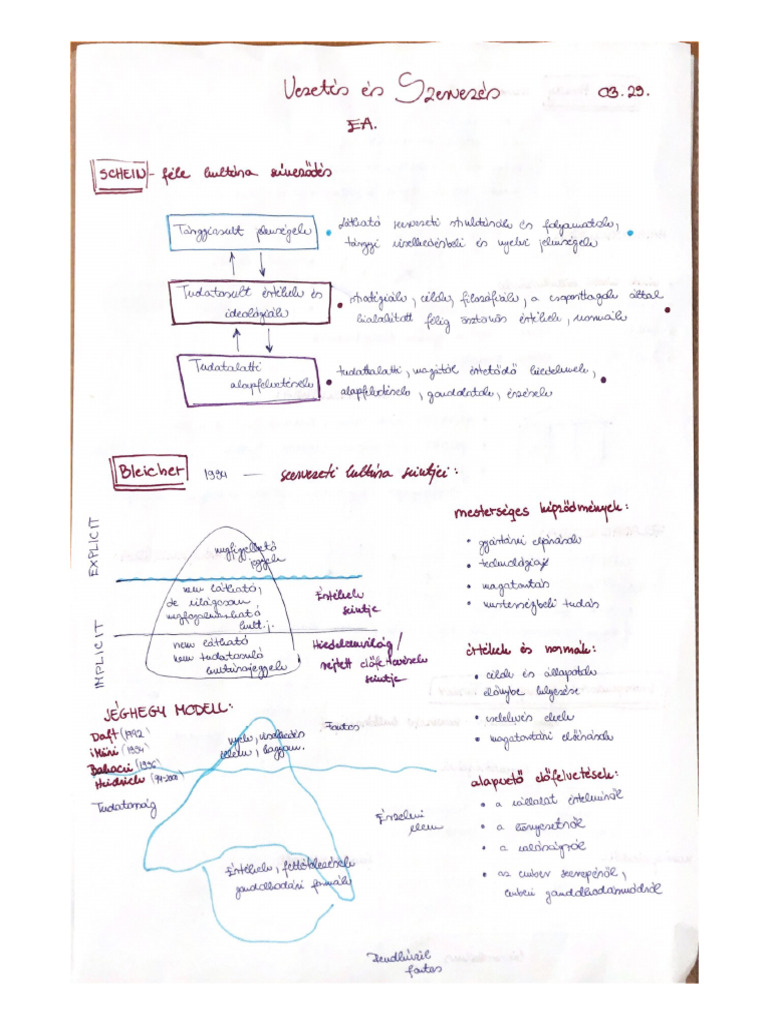 Vezetés és Szervezés 03.29.
EA.
SCHEIN - féle kultúra szinesődés
Tárgyiasult jelenségek
• látható szervezeti struktúrák és folyamatok,
tárgyi viselkedésbeli és nyelvi jelenségek •
Tudatosult értékek és
ideológiák
• stratégiák, célok, filozófiák, a csoporttagok által
kialakított félig ösztönös értékek, normák •
Tudatalatti
alapfeltevések
• tudatalatti, magától értetődő hiedelmek,
alapfeltevések, gondolatok, érzések •
Bleicher 1994 — szervezeti kultúra szintjei:
EXPLICIT
IMPLICIT
megfigyelhető
jegyek
nem látható,
de világosan
megfogalmazható
kult. j.
Értékek
szintje
nem látható
nem tudatosuló
kultúrajegyek
Hiedelemvilág /
rejtett előfeltevések
szintje
mesterséges képződmények:
• gyártási eljárások
• technológiák
• magatartás
• mesterségbeli tudás
értékek és normák:
• célok és állapotok
• előnybe helyezése
• cselekvés elvek
• magatartási előírások
alapvető előfeltevések:
• a vállalat értelméről
• a környezetről
• a valóságról
• az ember szerepéről,
emberi gondolkodásmódról
JÉGHEGY MODELL:
Daft (1992)
(1994)
Bakacsi (1996)
Heidrich
Tudatosság
nyelv, viselkedés
hagyom.
Fontos
Érzelmi
elem
Értékek, feltételezések
gondolkodási formák
Rendkívül
fontos